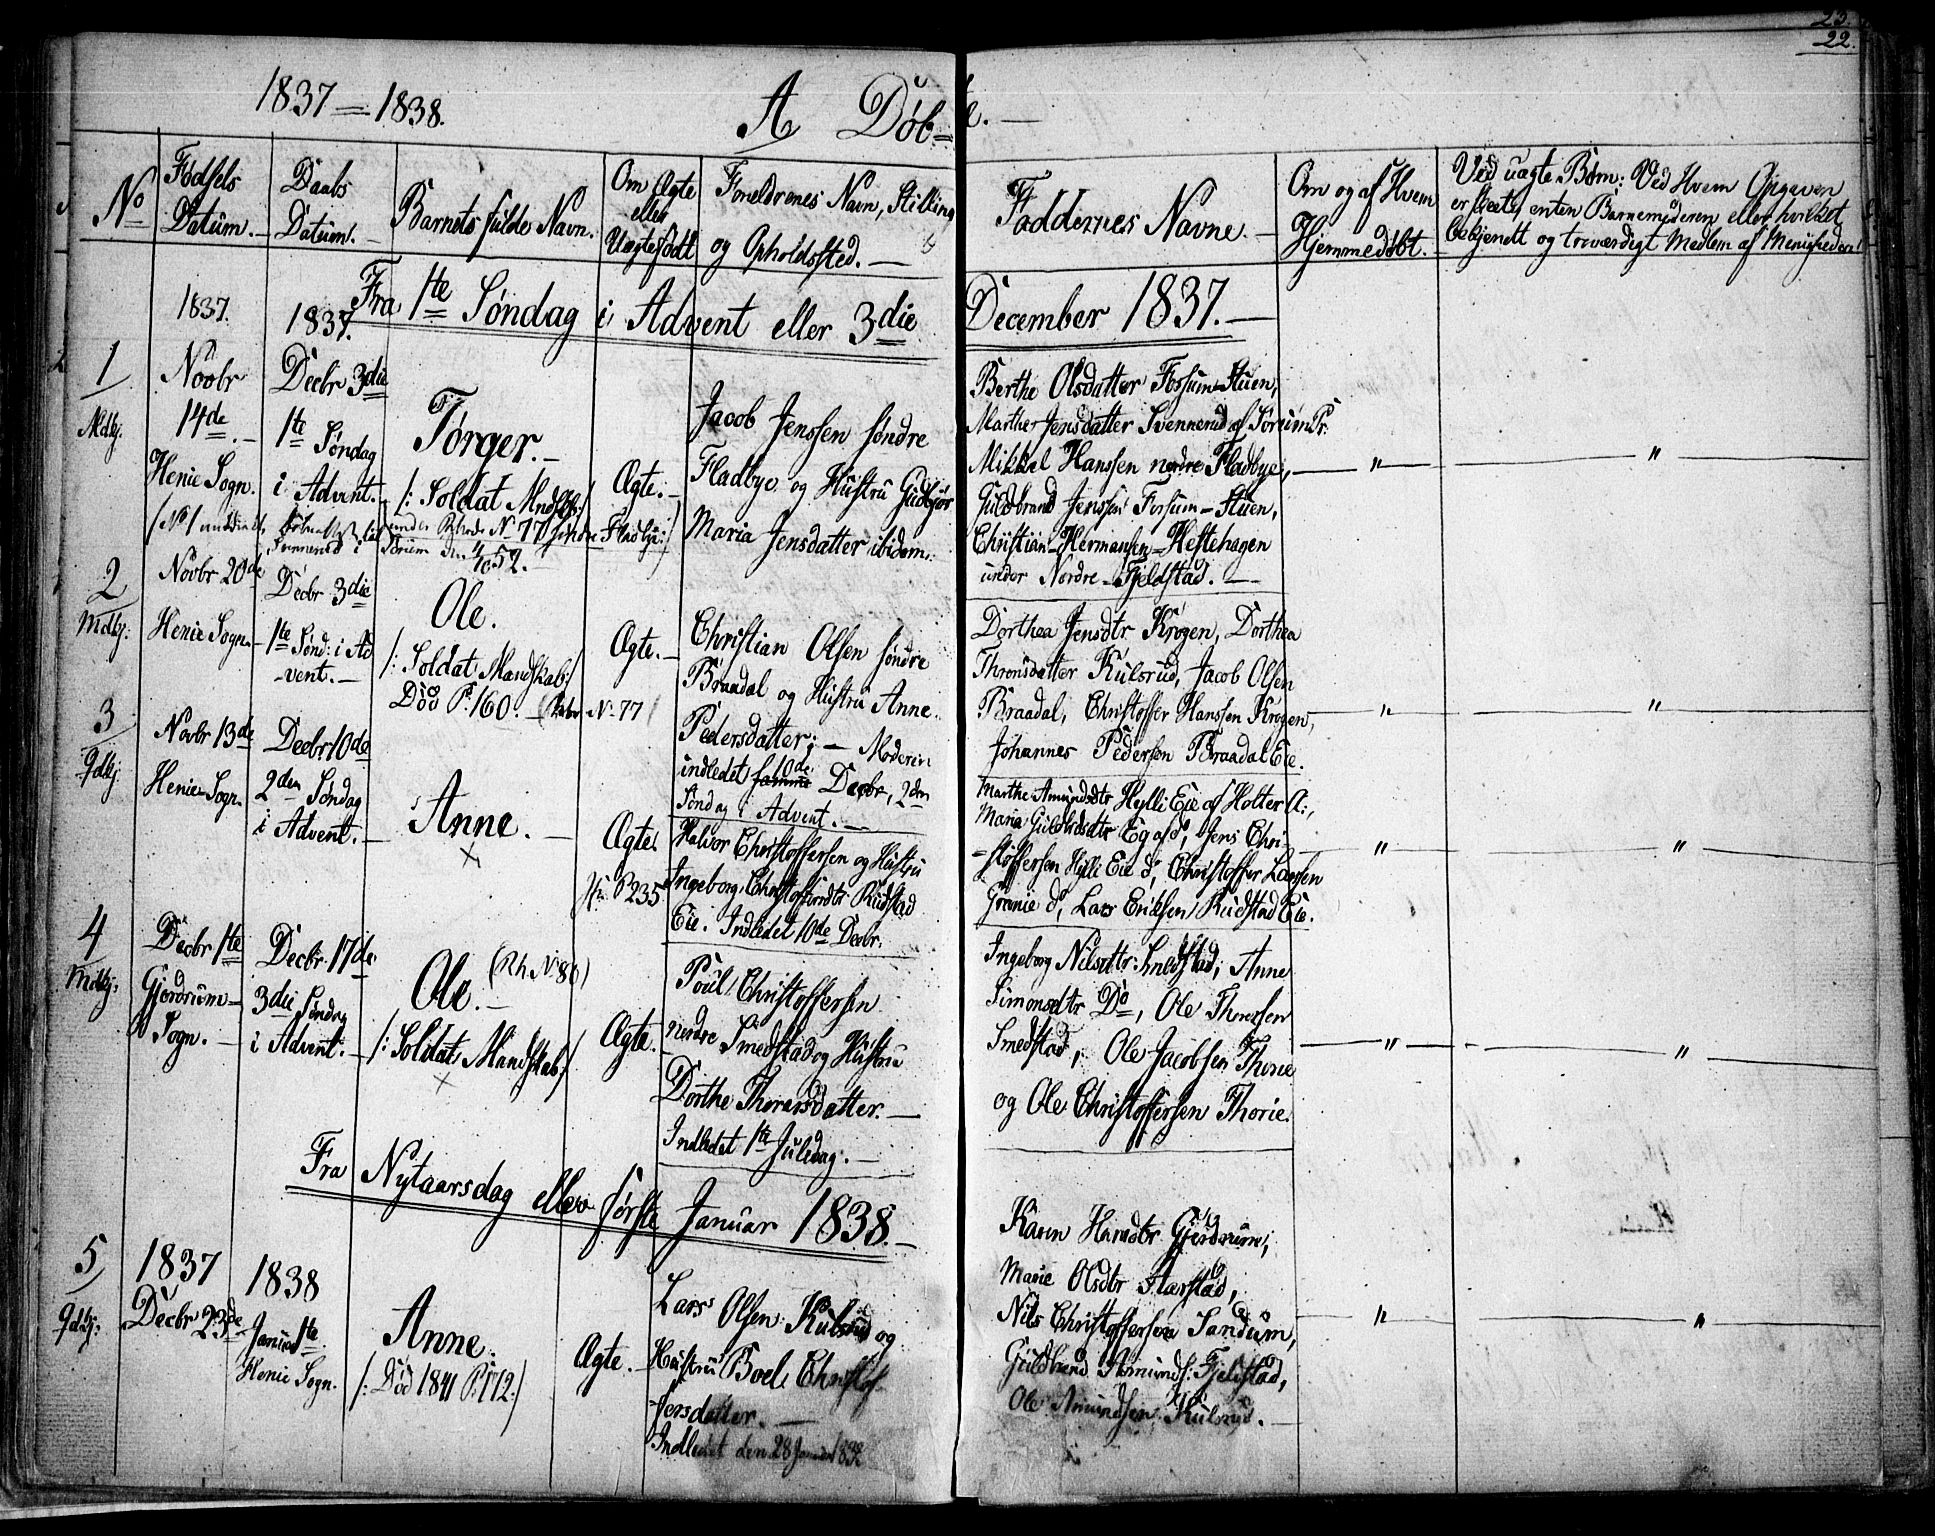 23.
22.
1837 — 1838.
A Döb=
e. —
No
Födsels Datum. —
Daabs Datum. —
Barnets fulde Navn.
Om Ægte eller Uægtefödt
Foreldrenes Navn, Stilling og Opholdssted. —
Faddernes Navne. —
Om og af Hvem Hjemmedöbt. —
Ved uægte Börn: Ved Hvem Opgaven
er skeet, enten Barnemoderen eller hvilket
bekjendt og troværdigt Medlem af Menigheden
Fra 1te Söndag i Advent eller 3die
December 1837. —
1837.
1837.
1
Mdkj.
Novbr
14de. —
Henie Sogn.
Decbr 3die
1te Söndag
i Advent. —
Törger. —
/: Soldat Mndsk:/
under Rhode No 77 söndre Fladbye:/
Sörum den
Ægte. —
Jacob Jenssen söndre
Fladbye og Hustru Gudbjör
Maria Jensdatter ibidem.
Berthe Olsdatter Fossum-Stuen,
Marthe Jensdatter Svennerud af Sörum Pr:
Mikkel Hanssen nordre Fladbye,
Guldbrand Jenssen Fossum-Stuen,
Christian Hermansen Hestehagen
under Nordre-Fjeldstad. —
— " —
"
2
Mdkj:
Novbr 20de
Henie Sogn. —
Decbr 3die
1te Sönd: i Ad
-vent. —
Ole.
/: Soldat, Mandskab:/
Död P. 160. — No 77
Ægte. —
Christian Olsen söndre
Braadal og Hustru Anne
Pedersdatter; — Moderen
indledet 10de Decbr, 2den
Söndag i Advent. —
Dorthea Jensdtr Krogen, Dorthea
Thronsdatter Kulsrud, Jacob Olsen
Braadal, Christoffer Hanssen Krogen,
Johannes Pedersen Braadal Eie.
— " —
"
3
Qdkj
Novbr 13de
Henie Sogn.
Decbr. 10de
2den Söndag
i Advent. —
Anne. —
Ægte.
P 235
Halvor Christoffersen og Hustru
Ingeborg Christoffersdtr Rudstad
Eie. Indledet 10de Decbr.
Marthe Amundsdtr Hylli Eie af Holter A:,
Maria Guldbrdsdtr Eg af do, Jens Chri-
-stoffersen Hylli Eie do, Christoffer Larsen
Granie do, Lars Eriksen Rudstad Eie.
— " —
"
4
Mdkj:
Decbr 1te
Gjerdrum
Sogn. —
Decbr. 17de
3die Söndag
i Advent. —
Ole. — (Rh. No 80)
/: Soldat, Mandskab:/
Ægte.
Poul Christoffersen
nordre Smedstad og Hustru
Dorthe Thorersdatter. —
Indledet 1te Juledag. —
Ingeborg Nilsdtr: Smedstad, Anne
Simonsdtr Do, Ole Thoresen
Smedstad, Ole Jacobsen Thorie
og Ole Christoffersen Thorie.
— " —
"
Fra Nytaarsdag eller förste Januar 1838. —
5
Qdkj:
1837
Decbr 23de
1838
Januar 1te
Henie Sogn.
Anne.
/: Död 1841 P. 172:/
Ægte. —
Lars Olsen Kulsrud og
Hustru Boel Christof-
fersdatter. —
Indledet den 28 Januar 1838
Karen Hansdtr Gjerdrum,
Marie Olsdtr Aarstad,
Nils Christoffersen Sandum,
Guldbrand Amunds: Fjeldstad,
Ole Amundsen Kulsrud. —
— " —
"